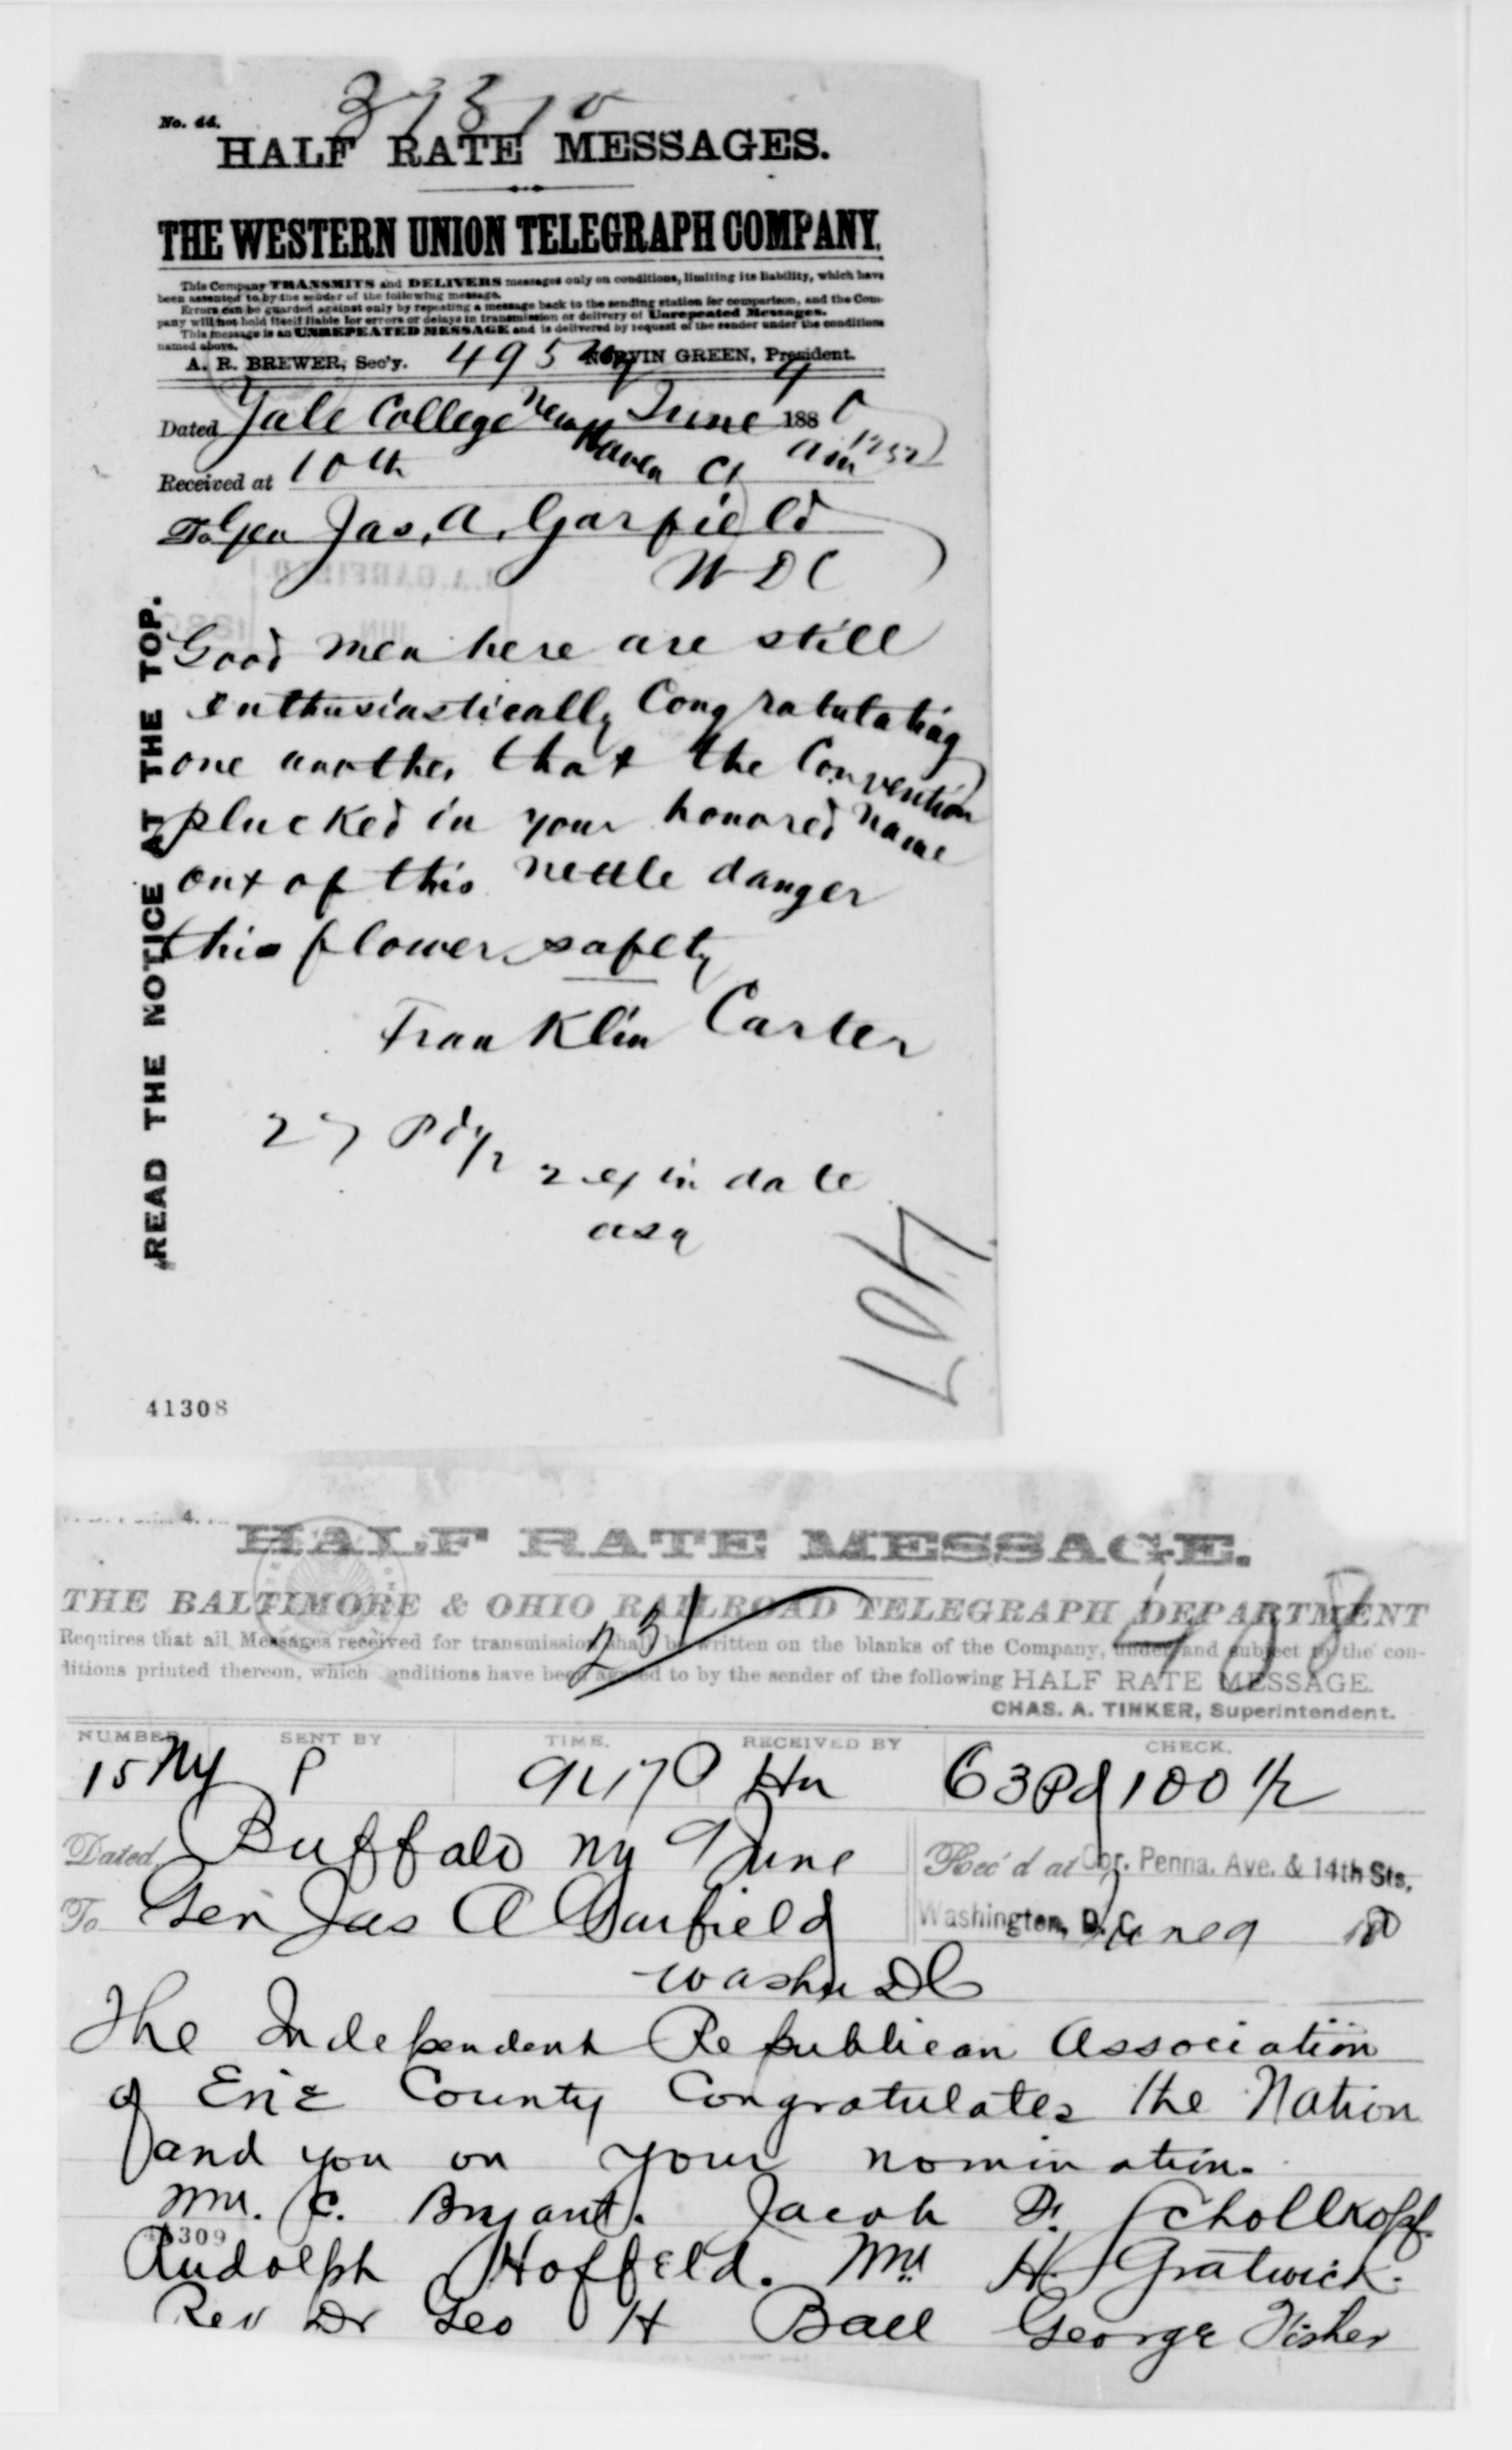 No. 44.
HALF RATE MESSAGES.
THE WESTERN UNION TELEGRAPH COMPANY.
This Company TRANSMITS and DELIVERS messages only on conditions, limiting its liability, which have
been assented to by the sender of the following message.
Errors can be guarded against only by repeating a message back to the sending station for comparison, and the Com-
pany will not hold itself liable for errors or delays in transmission or delivery of Unrepeated Messages.
This message is an UNREPEATED MESSAGE and is delivered by request of the sender under the conditions
named above.
A. R. BREWER, Sec'y. 495 NORVIN GREEN, President.
Dated Yale College New Haven Ct June 9 1880
Received at 10th am 1252
To Gen Jas. A. Garfield
W DC
READ THE NOTICE AT THE TOP.
Good men here are still
enthusiastically Congratulating
one another that the Convention
plucked in your honored name
out of this nettle danger
this flower safety
Franklin Carter
27 Pd 1/2 2 ex in date
407
41308
4.
HALF RATE MESSAGE.
THE BALTIMORE & OHIO RAILROAD TELEGRAPH DEPARTMENT
Requires that all Messages received for transmission shall be written on the blanks of the Company, under and subject to the con-
ditions printed thereon, which conditions have been agreed to by the sender of the following HALF RATE MESSAGE.
CHAS. A. TINKER, Superintendent.
231
408
NUMBER SENT BY TIME. RECEIVED BY CHECK.
15 Ny P 63 Pd 100 1/2
Dated Buffalo Ny 9 June Rec'd at Cor. Penna. Ave. & 14th Sts.
To Gen Jas A Garfield Washington, D.C. June 9 1880
Washn DC
The Independent Republican Association
of Erie County Congratulates the Nation
and you on your nomination.
Wm. C. Bryant. Jacob F. Schollkopf.
41309
Rudolph Hoffeld. Wm H. Gratwick.
Rev Dr Geo H Ball George Fisher